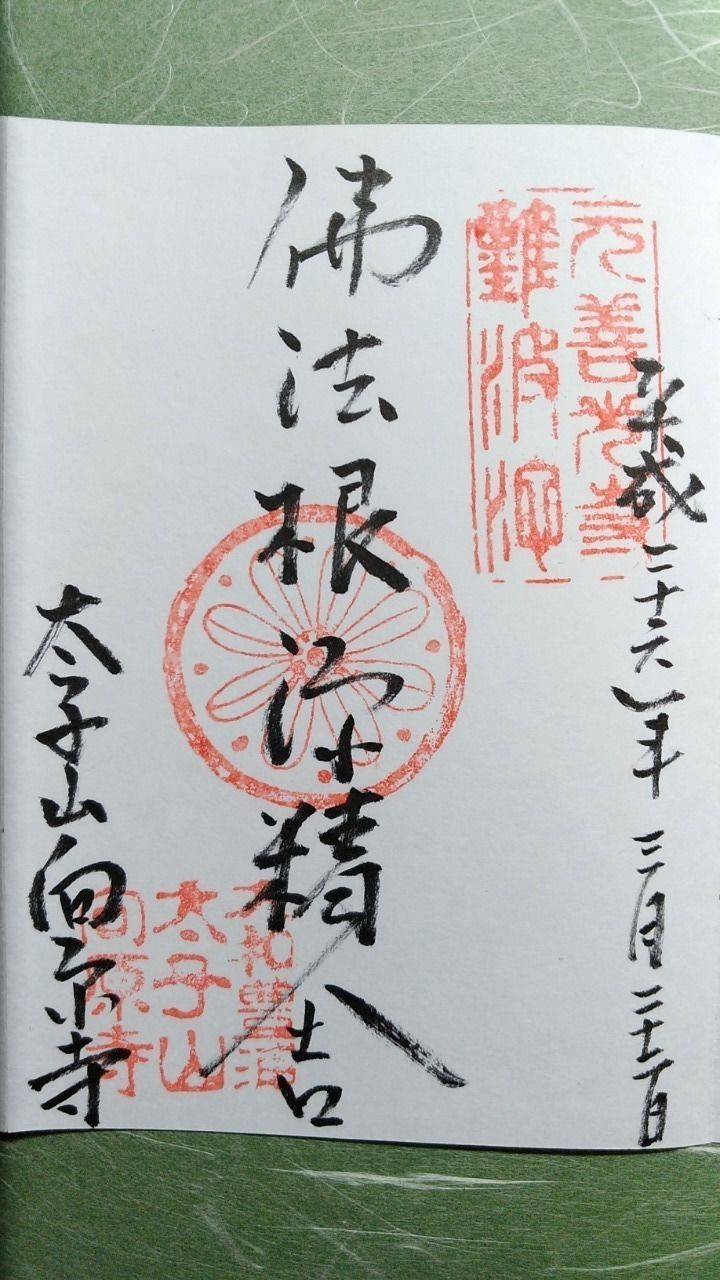 平成二十六年三月二十一日
元善光寺
難波
佛法根源精舎
大和豊浦
太子山
向原寺
太子山向原寺